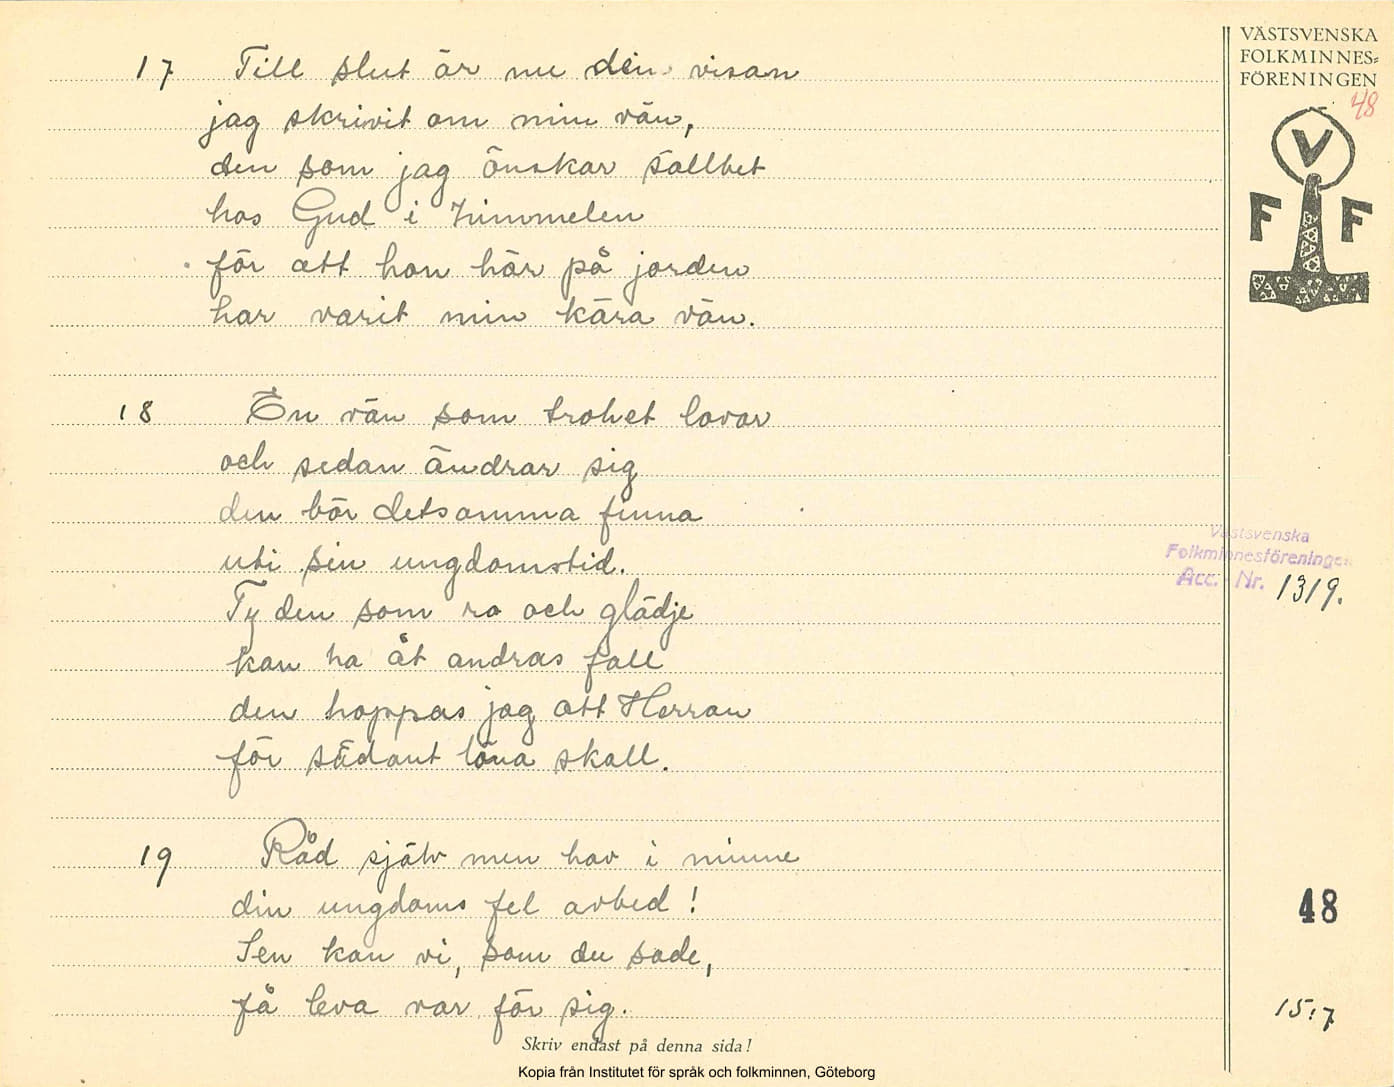 VÄSTSVENSKA
FOLKMINNES-
FÖRENINGEN
48
V
F F
17 Till slut är nu den visan
jag skrivit om min vän,
den som jag önskar sällhet
hos Gud i himmelen
för att han här på jorden
har varit min kära vän.
18 En vän som trohet lovar
och sedan ändrar sig
den bör detsamma finna
uti sin ungdomstid.
Ty den som ro och glädje
kan ha åt andras fall
den hoppas jag att Herran
för sådant löna skall.
Västsvenska
Folkminnesföreningen
Acc. Nr. 1319.
19 Råd själv men hav i minne
din ungdoms fel avbed!
Sen kan vi, som du sade,
få leva var för sig.
48
15:7
Skriv endast på denna sida!
Kopia från Institutet för språk och folkminnen, Göteborg